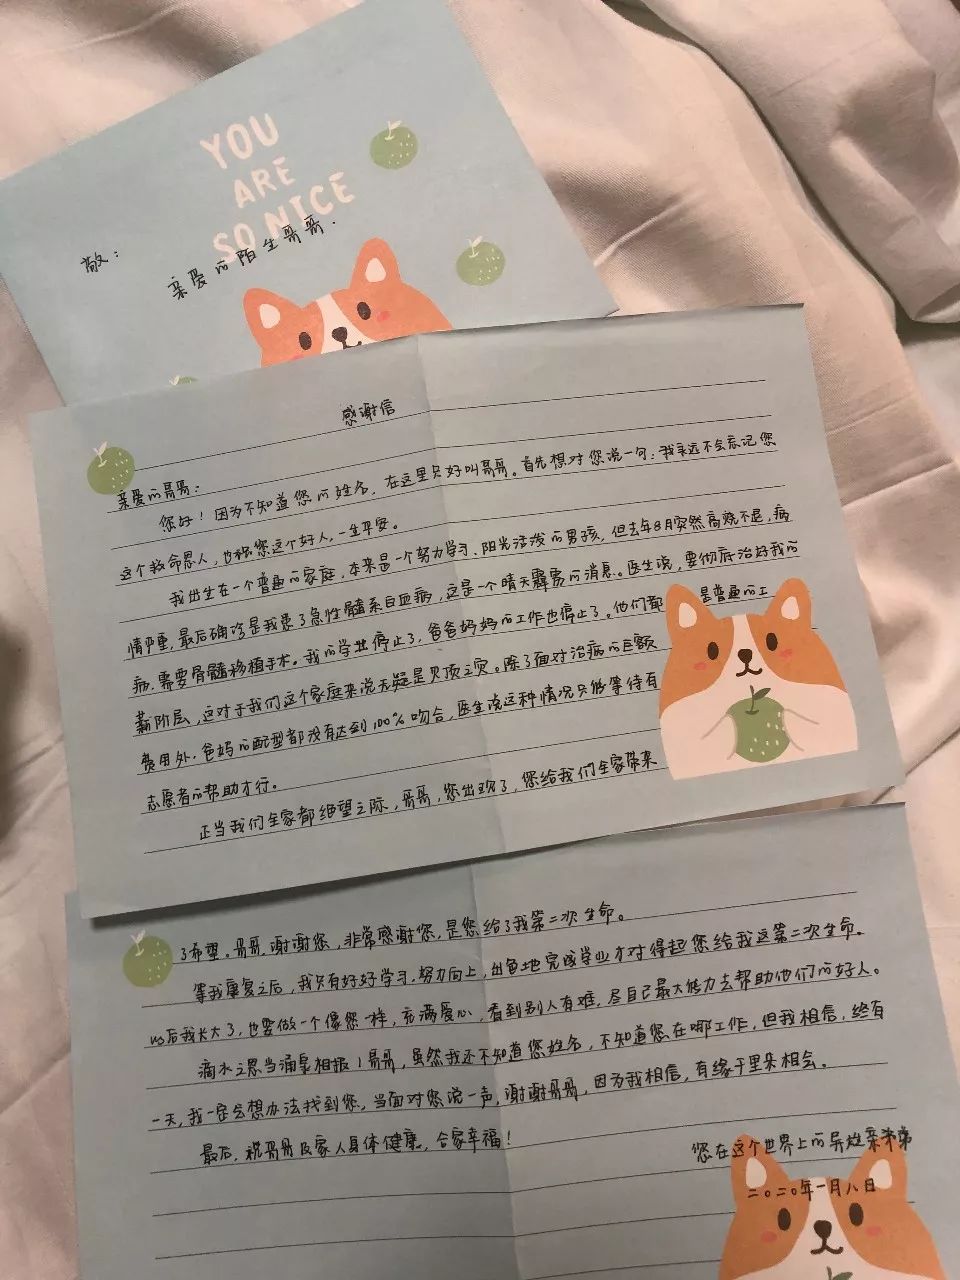 YOU
ARE
SO NICE
敬：
亲爱的陌生哥哥.
感谢信
亲爱的哥哥：
您好！因为不知道您的姓名，在这里只好叫哥哥。首先想对您说一句：我永远不会忘记您
这个救命恩人，也祝您这个好人，一生平安。
我出生在一个普通的家庭，本来是一个努力学习、阳光活泼的男孩，但去年8月突然高烧不退，病
情严重，最后确诊是我患了急性髓系白血病，这是一个晴天霹雳的消息。医生说，要彻底治好我的
病，需要骨髓移植手术。我的学业停止了，爸爸妈妈的工作也停止了。他们都是普通的工
薪阶层，这对于我们这个家庭来说无疑是灭顶之灾。除了面对治病的巨额
费用外，爸妈的配型都没有达到100%吻合，医生说这种情况只能等待有
志愿者的帮助才行。
正当我们全家都绝望之际，哥哥，您出现了，您给我们全家带来
了希望。哥哥，谢谢您，非常感谢您，是您给了我第二次生命。
等我康复之后，我只有好好学习，努力向上，出色地完成学业才对得起您给我这第二次生命。
以后我长大了，也要做一个像您一样，充满爱心，看到别人有难，尽自己最大能力去帮助他们的好人。
滴水之恩当涌泉相报！哥哥，虽然我还不知道您姓名，不知道您在哪工作，但我相信，终有
一天，我一定会想办法找到您，当面对您说一声，谢谢哥哥，因为我相信，有缘千里来相会。
最后，祝哥哥及家人身体健康，合家幸福！
您在这个世界上的异姓亲弟弟
二〇二〇年一月八日